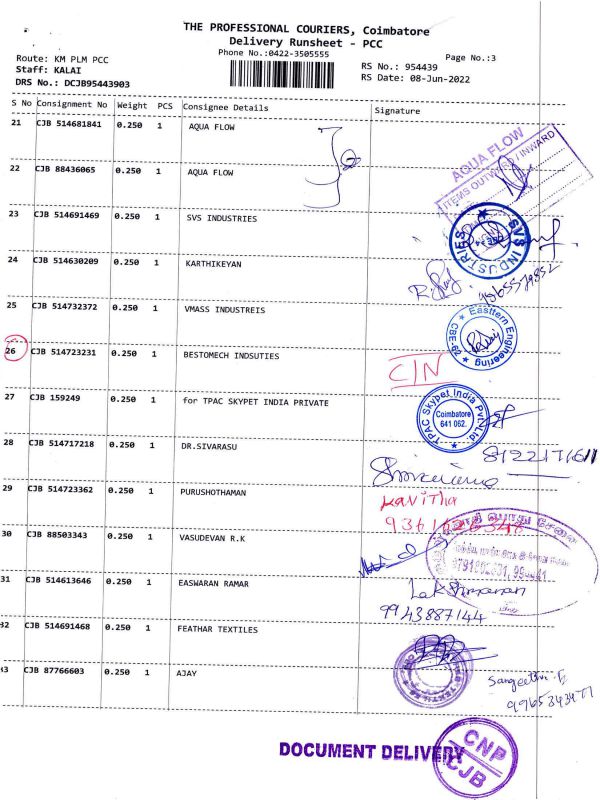 THE PROFESSIONAL COURIERS, Coimbatore
Delivery Runsheet - PCC
Phone No.:0422-3505555
Page No.:3
Route: KM PLM PCC
Staff: KALAI
DRS No.: DCJB95443903
RS No.: 954439
RS Date: 08-Jun-2022
S No Consignment No Weight PCS Consignee Details Signature
21 CJB 514681841 0.250 1 AQUA FLOW
22 CJB 88436065 0.250 1 AQUA FLOW
AQUA FLOW
ITEMS OUTWARD / INWARD
23 CJB 514691469 0.250 1 SVS INDUSTRIES
SVS INDUSTRIES
24 CJB 514630209 0.250 1 KARTHIKEYAN
25 CJB 514732372 0.250 1 VMASS INDUSTREIS
Easttern Engineering
CBE-29
26 CJB 514723231 0.250 1 BESTOMECH INDSUTIES
CIN
27 CJB 159249 0.250 1 for TPAC SKYPET INDIA PRIVATE
TPAC Skypet India Pvt. Ltd.
Coimbatore
641 062.
28 CJB 514717218 0.250 1 DR.SIVARASU
29 CJB 514723362 0.250 1 PURUSHOTHAMAN
Kavitha
30 CJB 88503343 0.250 1 VASUDEVAN R.K
31 CJB 514613646 0.250 1 EASWARAN RAMAR
Lakshmanan
9943887144
32 CJB 514691468 0.250 1 FEATHAR TEXTILES
33 CJB 87766603 0.250 1 AJAY
DOCUMENT DELIVERY
CNP
CJB